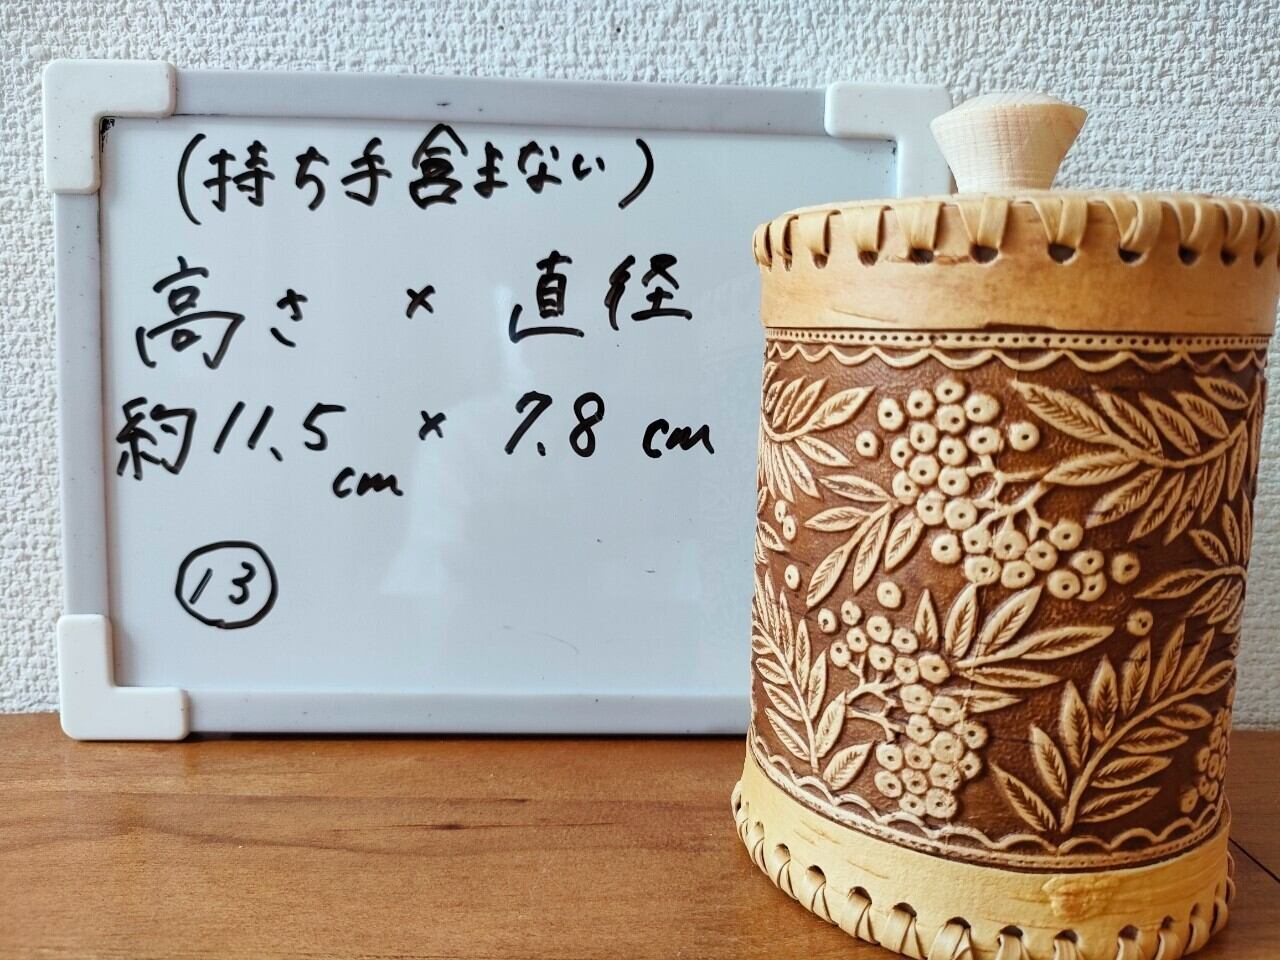 (持ち手含まない)
高さ × 直径
約11.5cm × 7.8cm
⑬